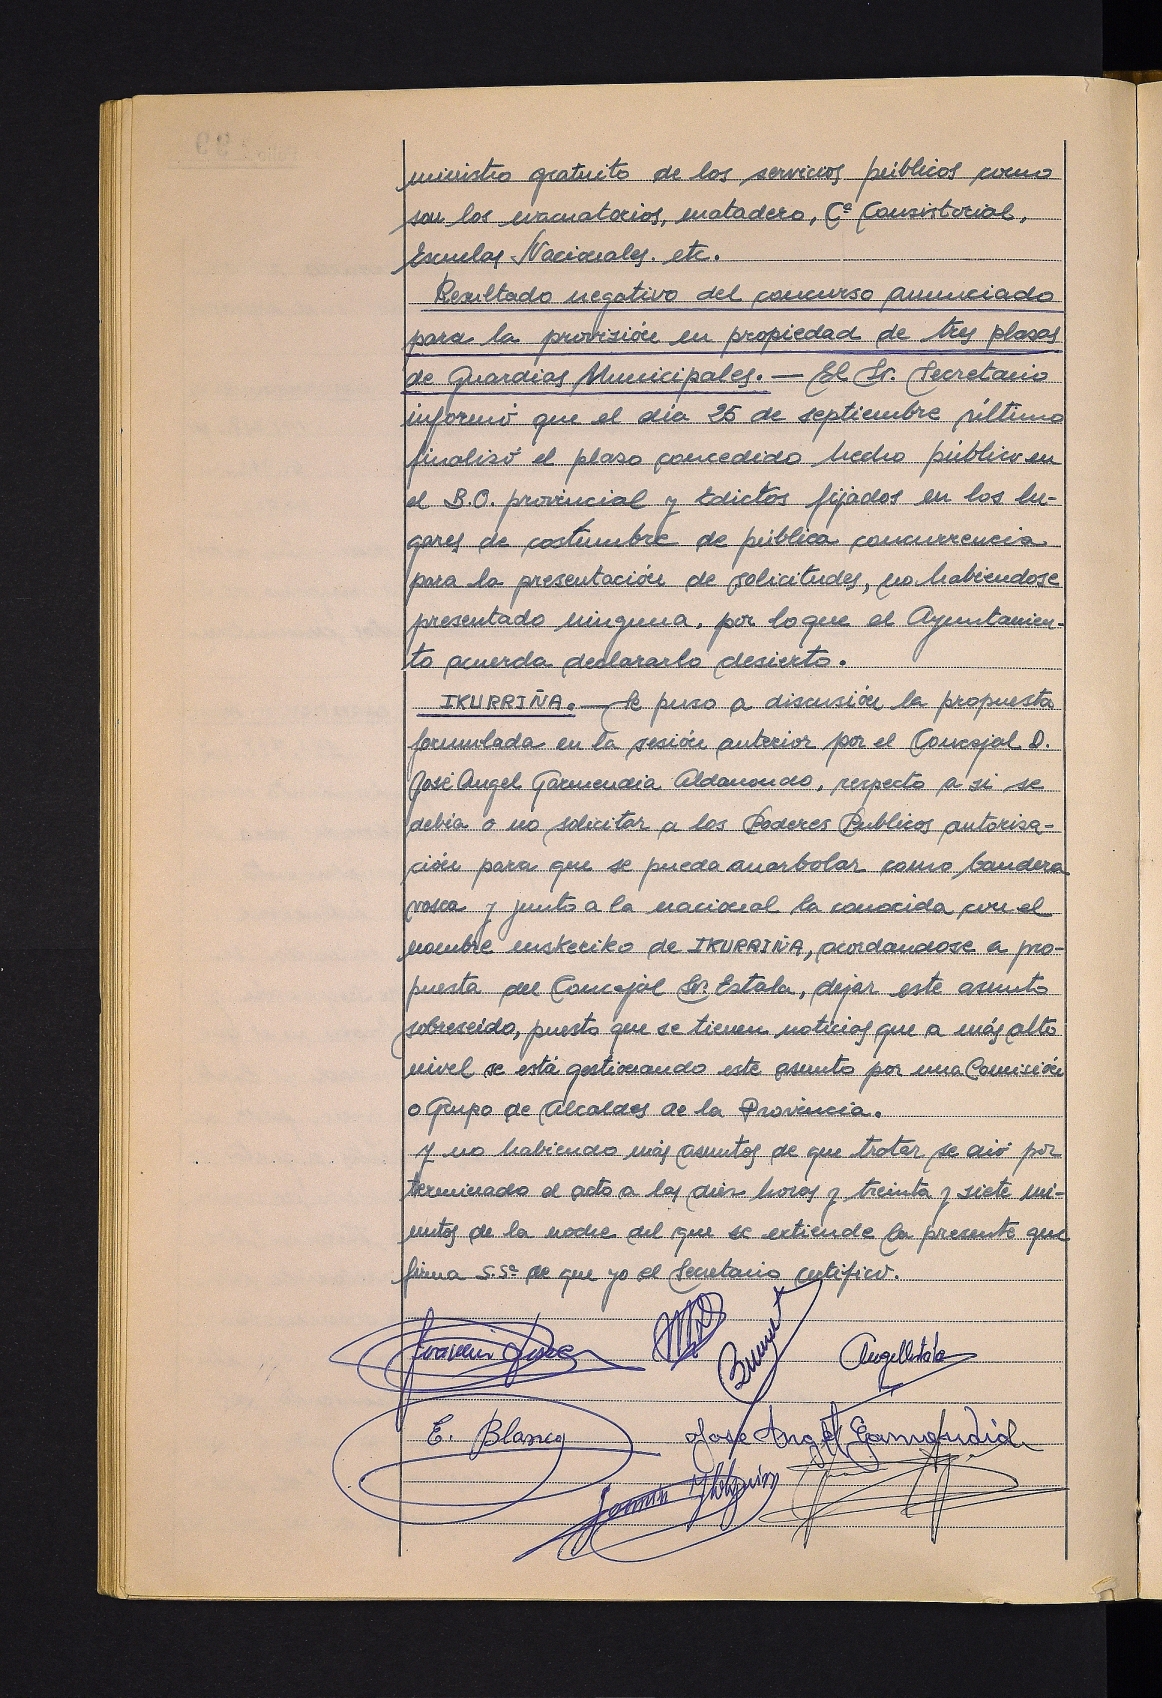 ministro gratuito de los servicios públicos como
son los evacuatorios, matadero, Cª Consistorial,
Escuelas Nacionales. etc.
Resultado negativo del concurso anunciado
para la provisión en propiedad de tres plasas
de Guardias Municipales. — El Sr. Secretario
informó que el dia 25 de septiembre último
finalisó el plaso concedido hecho público en
el B.O. provincial y Edictos fijados en los lu-
gares de costumbre de pública concurrencia
para la presentación de solicitudes, no habiendose
presentado ninguna, por lo que el Ayuntamien-
to acuerda declararlo desierto.
IKURRIÑA. — Se puso a discusión la propuesta
formulada en la sesión anterior por el Concejal D.
José Angel Garmendia Aldanondo, respecto a si se
debia o no solicitar a los Poderes Publicos autorisa-
ción para que se pueda anarbolar como bandera
vasca y junto a la nacional la conocida con el
nombre euskeriko de IKURRIÑA, acordandose a pro-
puesta del Concejal Sr. Estala, dejar este asunto
sobreseido, puesto que se tienen noticias que a más alto
nivel se está gestionando este asunto por una Comisión
o Grupo de Alcaldes de la Provincia.
Y no habiendo más asuntos de que tratar se dió por
terminado el acto a las dies horas y treinta y siete mi-
nutos de la noche del que se extiende la presente que
firma S.Sª de que yo el Secretario certifico.
Angel Estala
E. Blanco
Jose Angel Garmendia